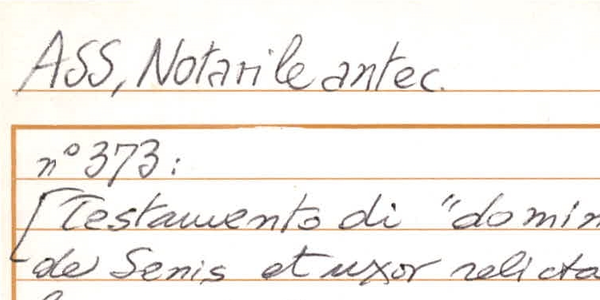 ASS, Notarile antec.
n° 373:
[Testamento di "domin
de Senis et uxor relicta